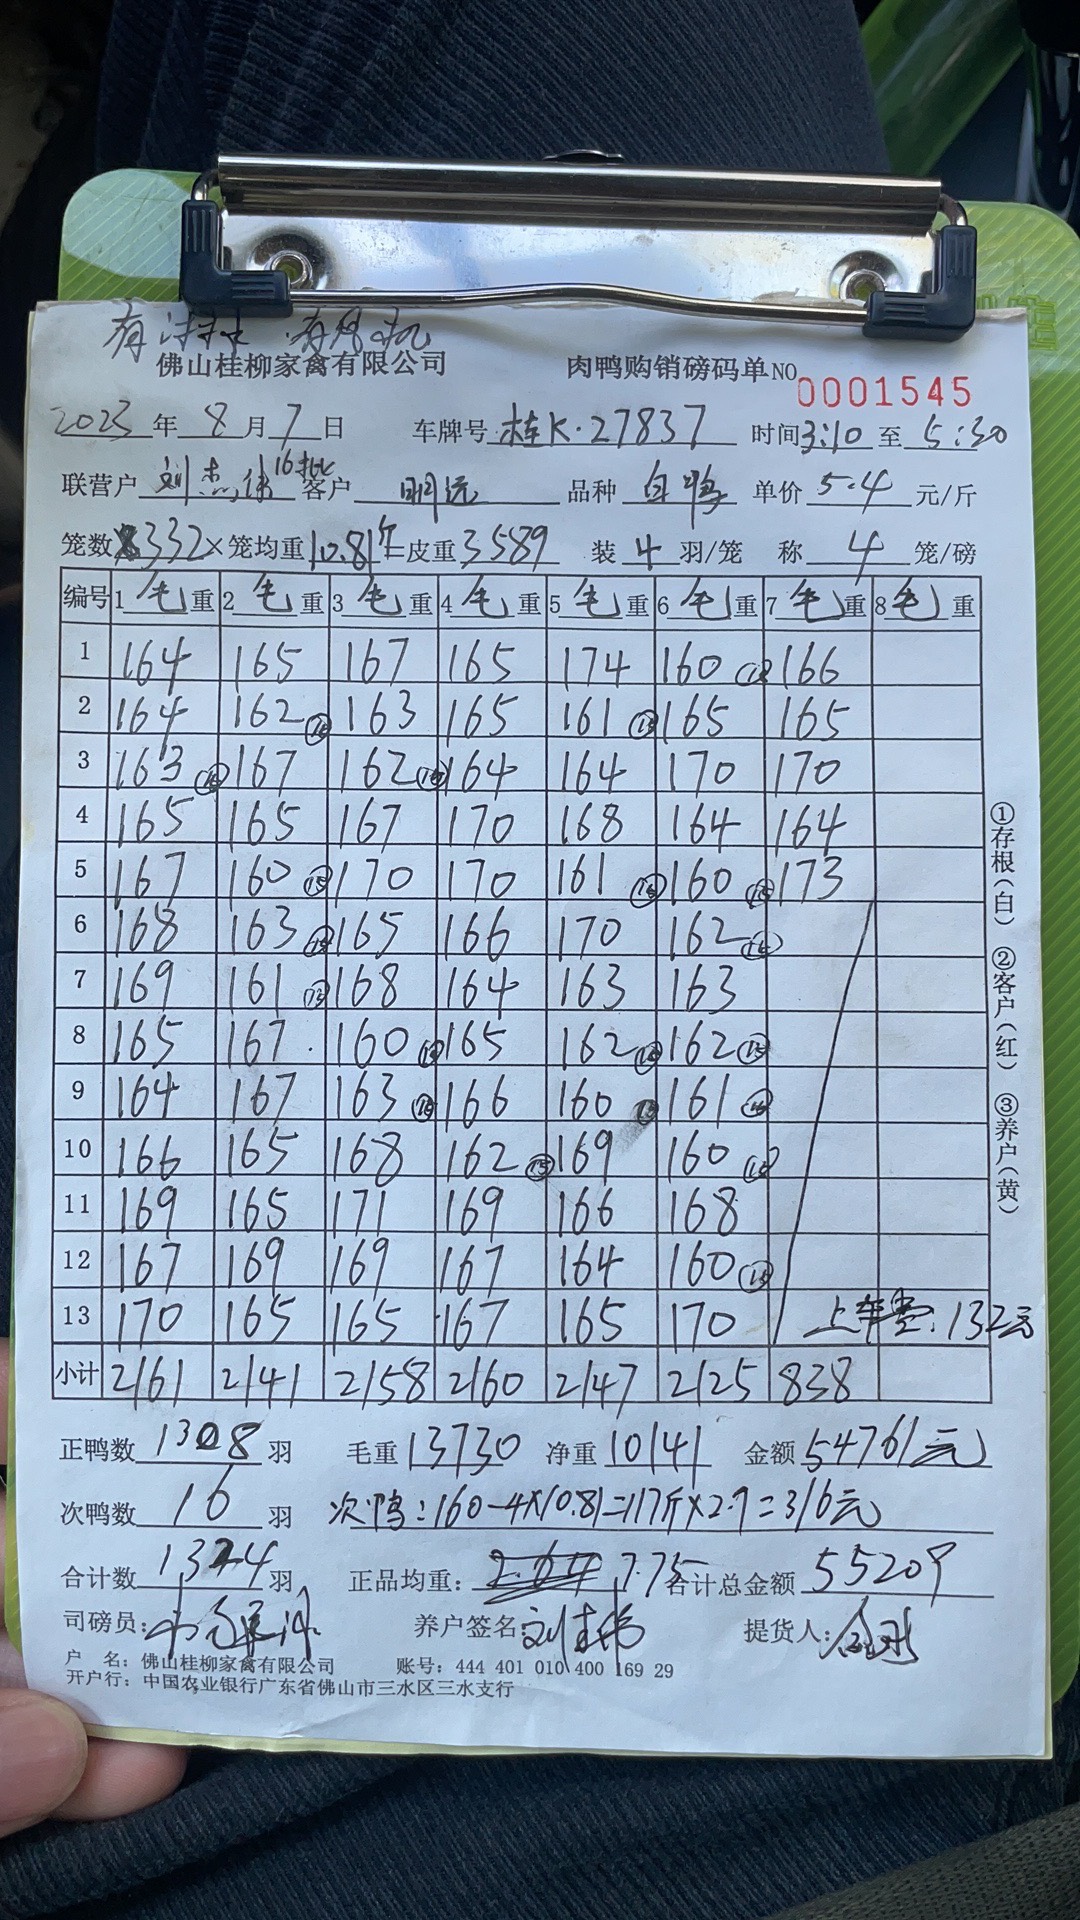 佛山桂柳家禽有限公司 肉鸭购销磅码单 NO 0001545
2023年8月7日 车牌号 桂K·27837 时间 3:10 至 5:30
联营户 刘杰伟 16批 客户 明远 品种 白鸭 单价 5.4 元/斤
笼数 332 × 笼均重 10.81斤 = 皮重 3589 装 4 羽/笼 称 4 笼/磅
编号 1 毛 重 2 毛 重 3 毛 重 4 毛 重 5 毛 重 6 毛 重 7 毛 重 8 毛 重
1 164 165 167 165 174 160 166
2 164 162 ⑮ 163 165 161 ⑮ 165 165
3 163 167 162 164 164 170 170
4 165 165 167 170 168 164 164
5 167 160 ⑮ 170 170 161 160 ⑮ 173
6 168 163 ⑮ 165 166 170 162
7 169 161 ⑮ 168 164 163 163
8 165 167 160 165 162 162 ⑮
9 164 167 163 166 160 161
10 166 165 168 162 ⑮ 169 160 ⑮
11 169 165 171 169 166 168
12 167 169 169 167 164 160 ⑮
13 170 165 165 167 165 170 上车费:132元
小计 2161 2141 2158 2160 2147 2125 838
①存根(白) ②客户(红) ③养户(黄)
正鸭数 1308 羽 毛重 13730 净重 10141 金额 54761元
次鸭数 16 羽 次鸭:160-4×10.81=117斤×2.7=316元
合计数 1324 羽 正品均重: 7.75 合计总金额 55209
司磅员: 养户签名: 刘杰伟 提货人:
户 名:佛山桂柳家禽有限公司 账号:444 401 010 400 169 29
开户行:中国农业银行广东省佛山市三水区三水支行